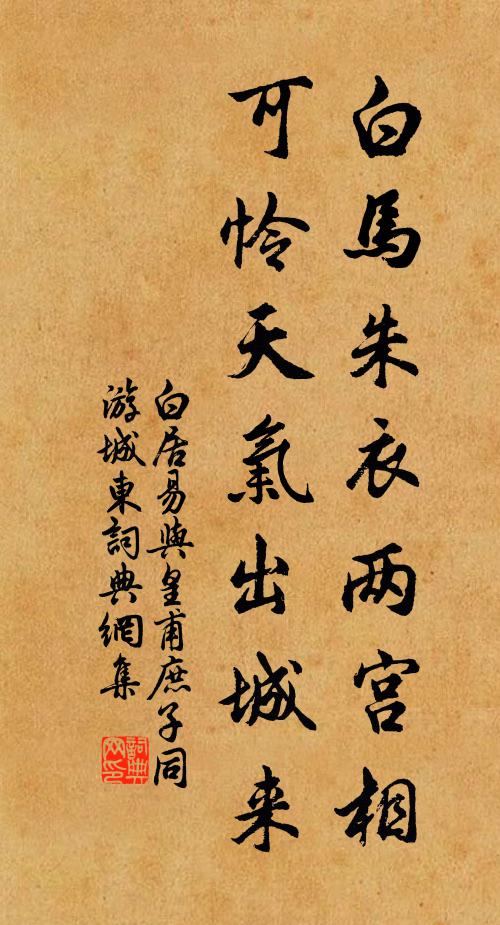 白馬朱衣两宫相
可怜天氣出城来
白居易與皇甫庶子同
游城東詞典網集
詞典
网印